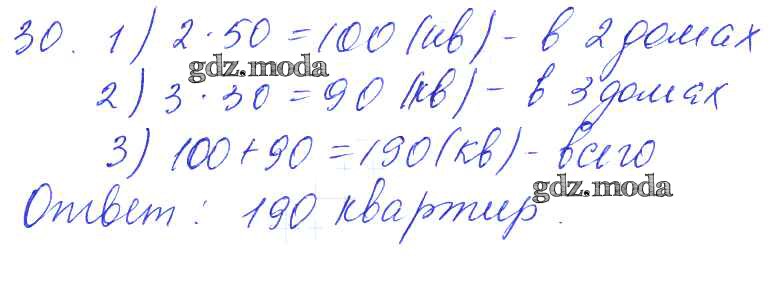 30. 1) 2 · 50 = 100 (кв) - в 2 домах
gdz.moda
2) 3 · 30 = 90 (кв) - в 3 домах
3) 100 + 90 = 190 (кв) - всего
gdz.moda
Ответ: 190 квартир.